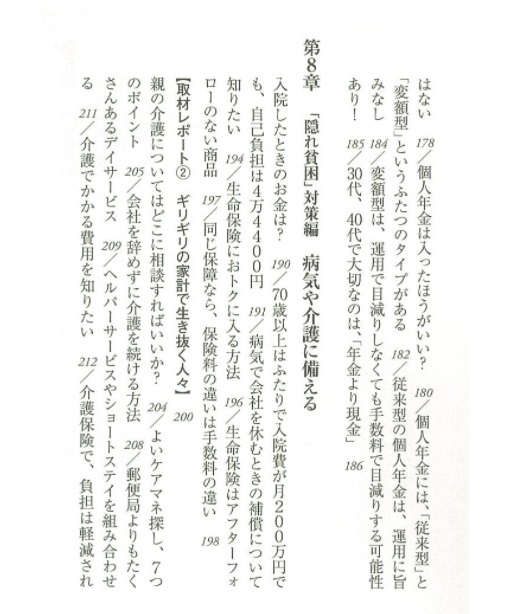 はない 178／個人年金は入ったほうがいい？ 180／個人年金には、「従来型」と
「変額型」というふたつのタイプがある 182／従来型の個人年金は、運用に旨
みなし 184／変額型は、運用で目減りしなくても手数料で目減りする可能性
あり！ 185／30代、40代で大切なのは、「年金より現金」 186
第8章 「隠れ貧困」対策編 病気や介護に備える
入院したときのお金は？ 190／70歳以上はふたりで入院費が月200万円で
も、自己負担は4万4400円 191／病気で会社を休むときの補償について
知りたい 194／生命保険におトクに入る方法 196／生命保険はアフターフォ
ローのない商品 197／同じ保障なら、保険料の違いは手数料の違い 198
【取材レポート②　ギリギリの家計で生き抜く人々】 200
親の介護についてはどこに相談すればいいか？ 204／よいケアマネ探し、7つ
のポイント 205／会社を辞めずに介護を続ける方法 208／郵便局よりもたく
さんあるデイサービス 209／ヘルパーサービスやショートステイを組み合わせ
る 211／介護でかかる費用を知りたい 212／介護保険で、負担は軽減され